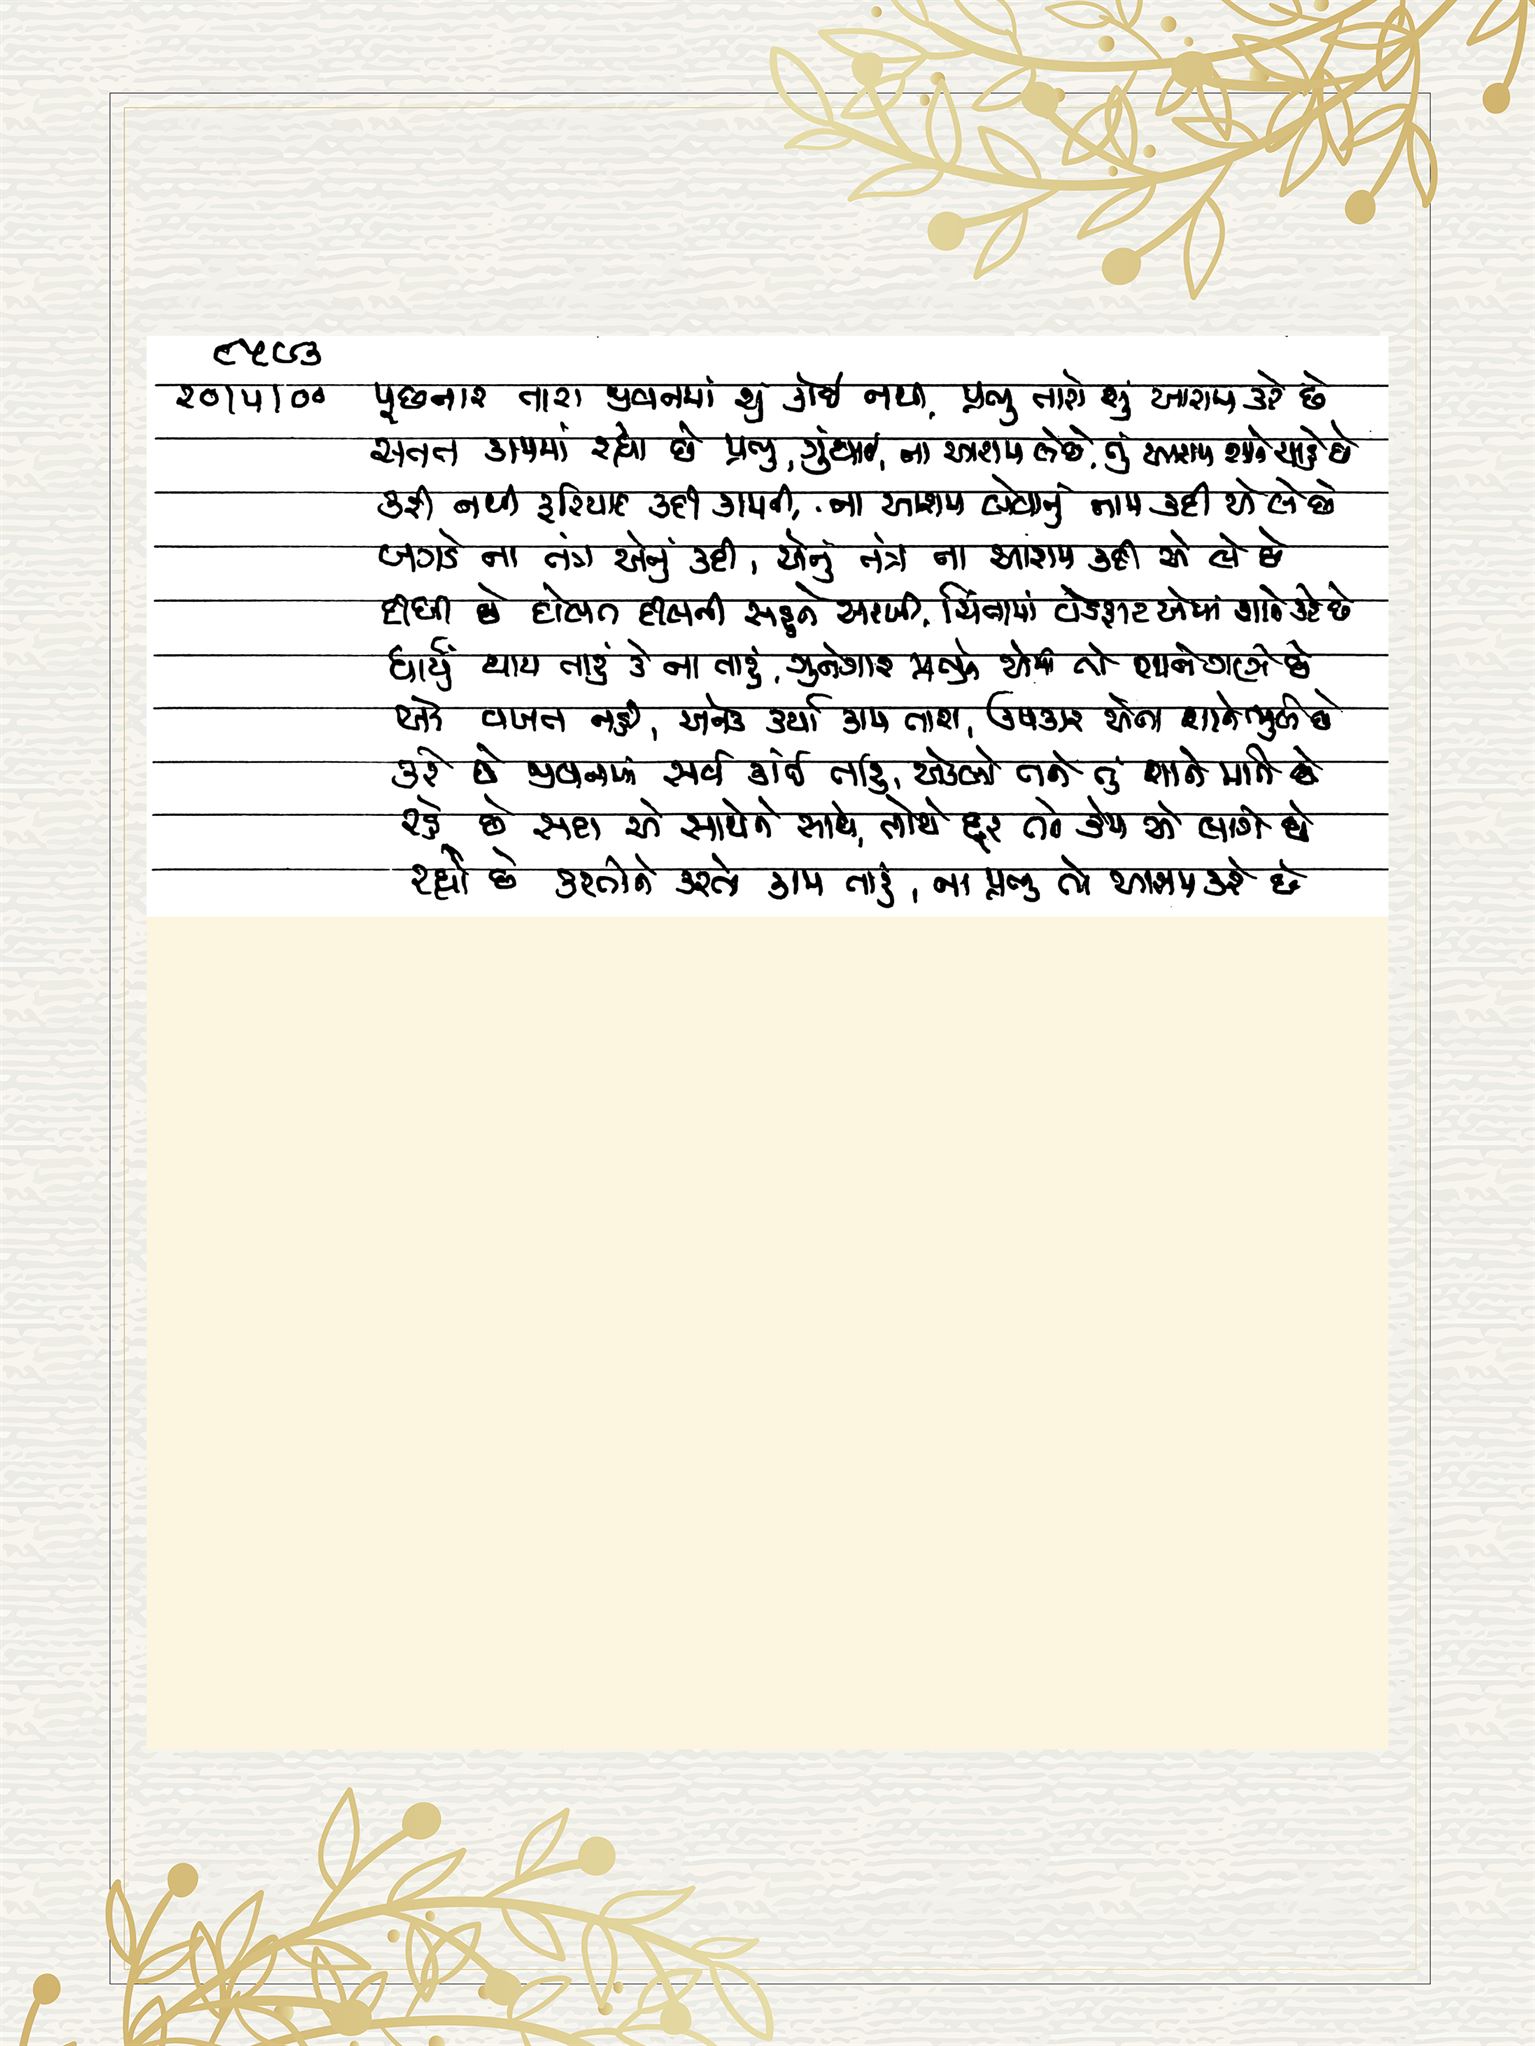 ૯૫૮૩
૨૦/૫/૦૦ પૂછનાર તારા જીવનમાં શું કોઈ નથી, પ્રભુ તારો શું આરામ કરે છે
સતત કામમાં રહ્યા છે પ્રભુ, ગુંથાઈ, ના આરામ લે છે, તું આરામ શાને ચાહે છે
કરી નથી ફરિયાદ કદી કામની, ના આરામ લેવાનું નામ કદી એ લે છે
બગડે ના તંત્ર એનું કદી, એનું તંત્ર ના આરામ કદી એ લે છે
દીધી છે દોલત દીલની સહુને સરખી, ચિંતામાં વેડફાટ એમાં શાને કરે છે
ધાર્યું થાય તારું કે ના તારું, ગુનેગાર પ્રભુને એમાં તો શાને ગણે છે
એક વખત નહીં, અનેક કર્યા કામ તારા, ઉપકાર એના શાને ભુલે છે
કરે છે જીવનમાં સર્વ કાંઈ તારું, એકલો તને તું શાને માને છે
રહે છે સદા એ સાથેને સાથે, તોયે દૂર તને કેમ એ લાગે છે
રહ્યો છે કરતોને કરતો કામ તારું, ના પ્રભુ તો આરામ કરે છે